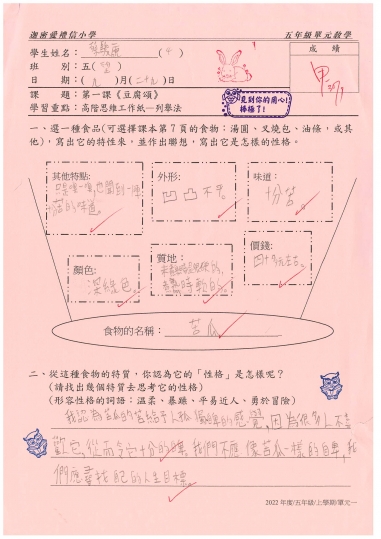 迦密愛禮信小學
五年級單元教學
學生姓名：
成績
班　　別：五（望）
日　　期：（九）月（二十九）日
課　　題：第一課《豆腐頌》
見到你的用心！
棒極了！
學習重點：高階思維工作紙—列舉法
一、選一種食品(可選擇課本第7頁的食物：湯圓、叉燒包、油條，或其
他)，寫出它的特性來，並作出聯想，寫出它是怎樣的性格。
其他特點:
苦的味道。
外形:
凹凸不平。
味道：
十分苦。
顏色:
深綠色。
質地：
價錢:
食物的名稱：苦瓜
二、從這種食物的特質，你認為它的「性格」是怎樣呢？
(請找出幾個特質去思考它的性格)
(形容性格的詞語：溫柔、暴躁、平易近人、勇於冒險)
我認為苦瓜的苦給予人自卑的感覺，因為很多人不喜
歡它，從而令它十分的自卑，我們不應像苦瓜一樣的自卑，我
們應尋找自己的人生目標。
2022 年度/五年級/上學期/單元一